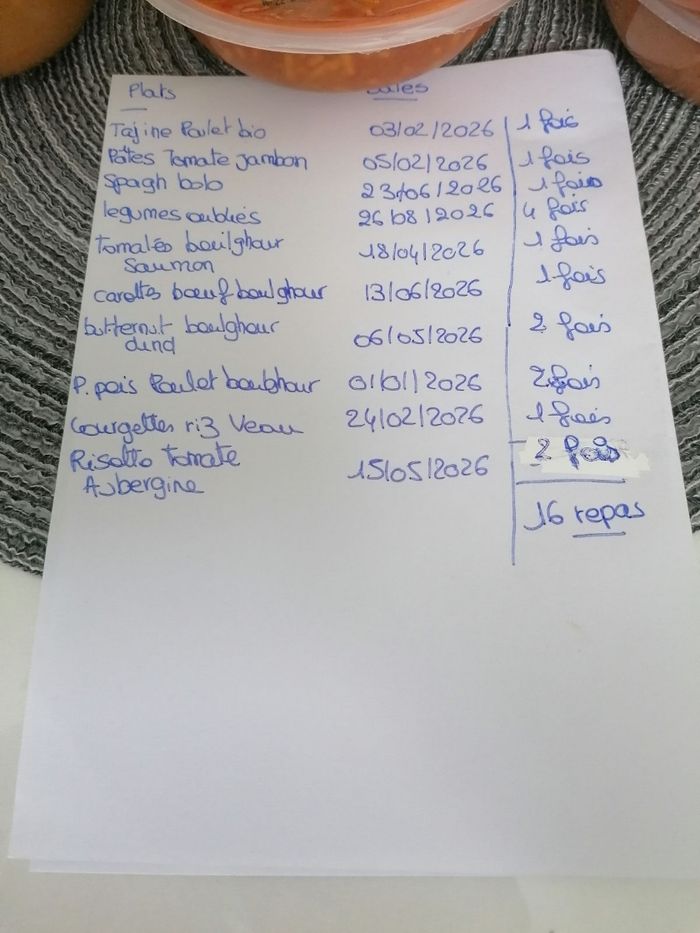 Plats Dates
Tajine Poulet bio 03/02/2026 1 fois
Pâtes Tomate jambon 05/02/2026 1 fois
Spagh bolo 23/06/2026 1 fois
légumes oubliés 26/08/2026 4 fois
tomates boulghour 18/04/2026 1 fois
Saumon
carottes boeuf boulghour 13/06/2026 1 fois
butternut boulghour 06/05/2026 2 fois
dind
P. pois Poulet boulghour 01/01/2026 2 fois
Courgettes riz Veau 24/02/2026 1 fois
Risotto tomate 15/05/2026 2 fois
Aubergine
16 repas